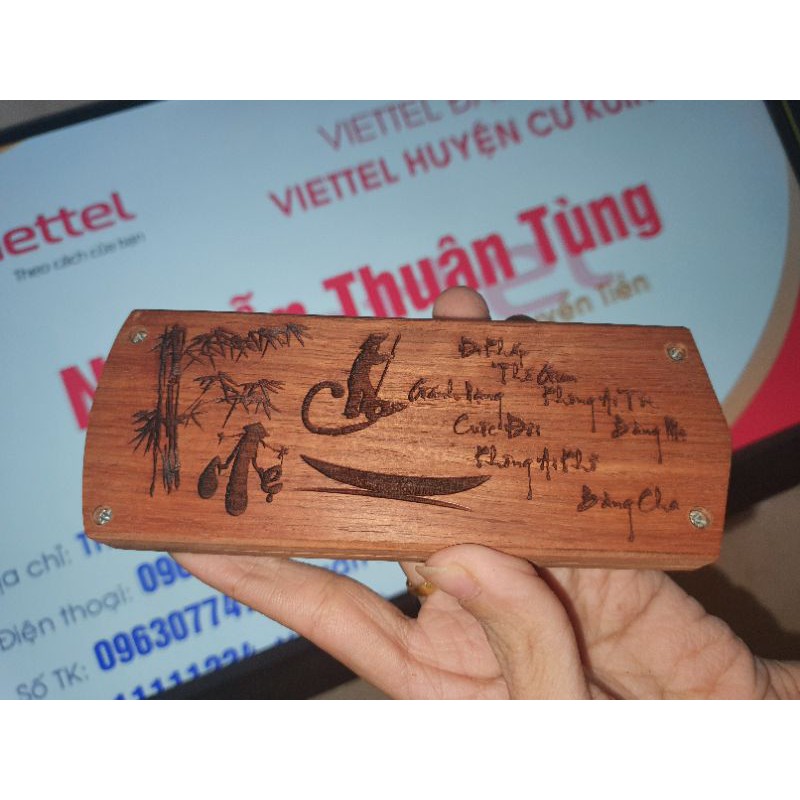 VIETTEL
VIETTEL HUYỆN CƯ KUIN
iettel
Theo cách của bạn
Thuận Tùng
Đi Khắp
Thế Gian
Không Ai Tốt
Bằng Mẹ
Gánh Nặng
Cuộc Đời
Không Ai Khổ
Bằng Cha
Mẹ
chỉ:
Điện thoại: 096
Số TK: 09630774